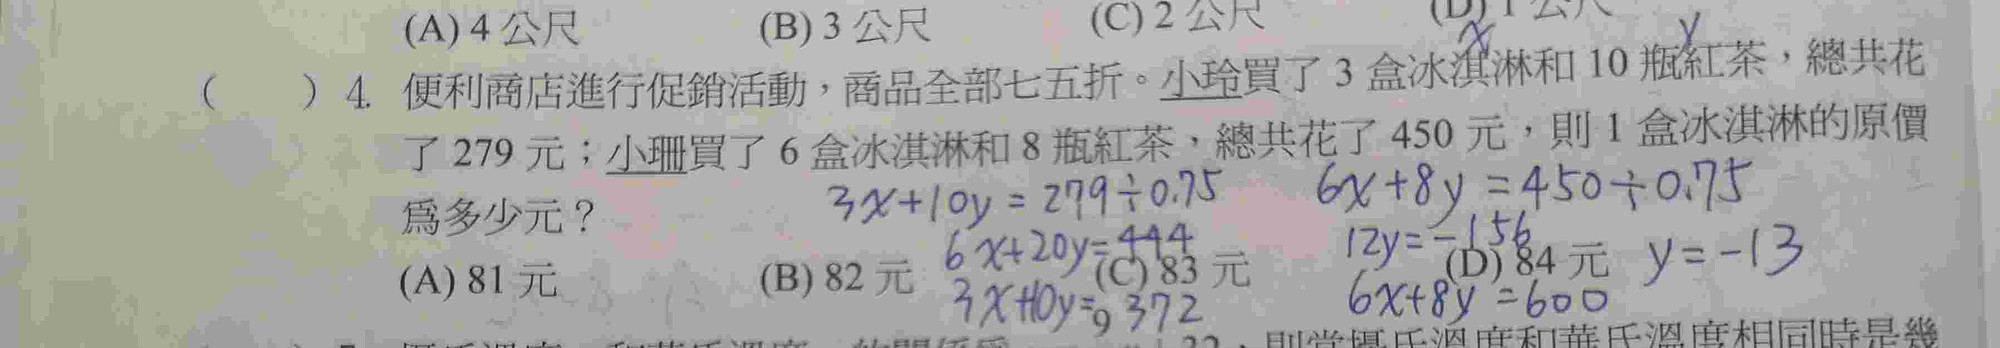 (A) 4 公尺 (B) 3 公尺 (C) 2 公尺 (D) 1 公尺
x y
( ) 4. 便利商店進行促銷活動，商品全部七五折。小玲買了 3 盒冰淇淋和 10 瓶紅茶，總共花
了 279 元；小珊買了 6 盒冰淇淋和 8 瓶紅茶，總共花了 450 元，則 1 盒冰淇淋的原價
為多少元？
3x+10y=279÷0.75 6x+8y=450÷0.75
6x+20y=444 12y=-156 y=-13
(A) 81 元 (B) 82 元 (C) 83 元 (D) 84 元
3x+10y=372 6x+8y=600
則當攝氏溫度和華氏溫度相同時是幾